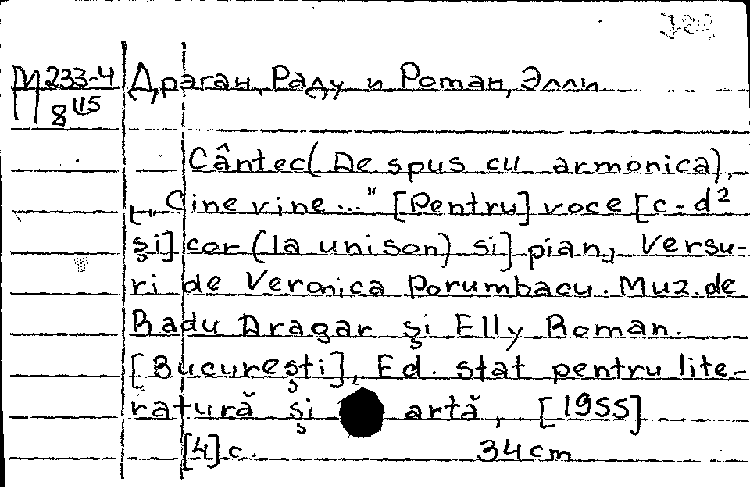 М 233-4
8415
Драган, Раду и Роман, Элли
Cântec (De spus cu armonica),
["Cine vine..." [Pentru] voce [c-d²
și] cor (la unison) si] pian, Versu-
ri de Veronica Porumbacu. Muz. de
Radu Dragar și Elly Roman.
[București], Ed. stat pentru lite-
ratură și artă, [1955]
[4] c. 34 cm